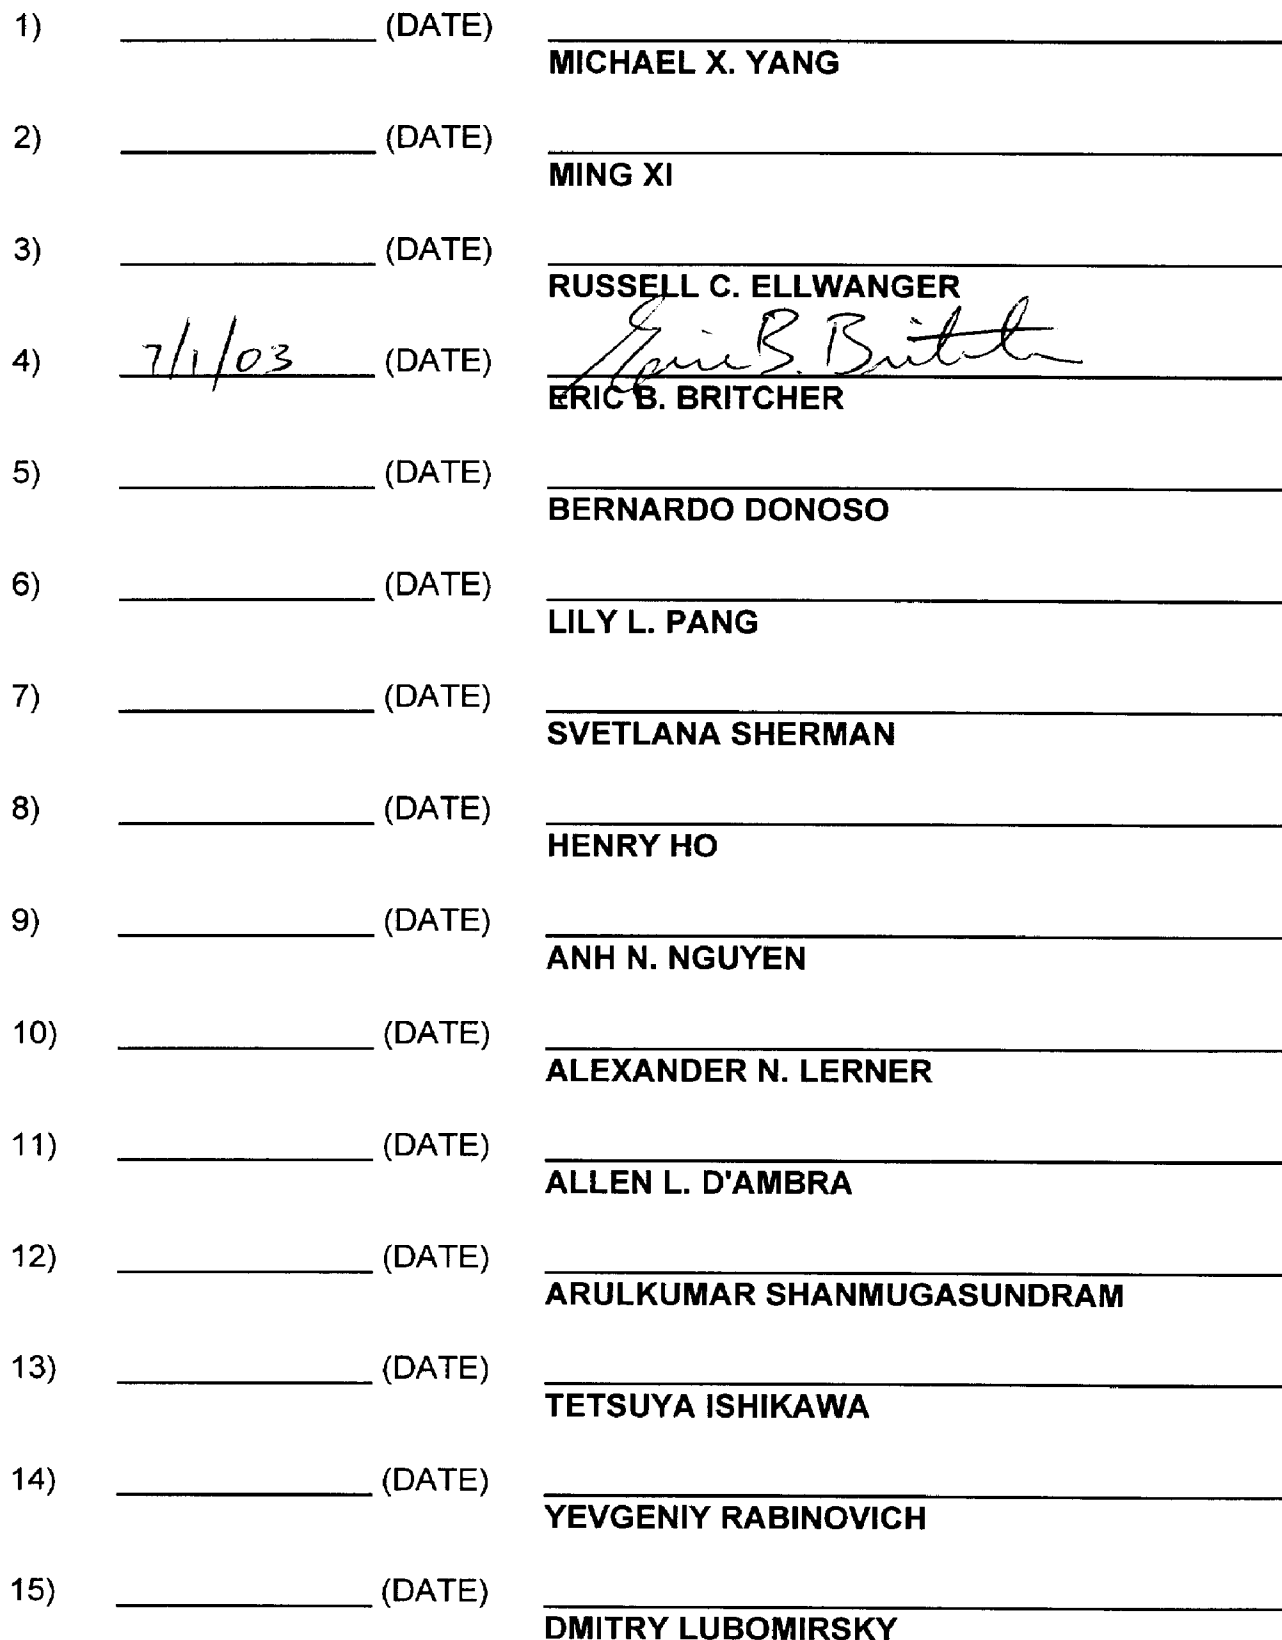 1) (DATE)
MICHAEL X. YANG
2) (DATE)
MING XI
3) (DATE)
RUSSELL C. ELLWANGER
4) 7/1/03 (DATE) Eric B. Britcher
ERIC B. BRITCHER
5) (DATE)
BERNARDO DONOSO
6) (DATE)
LILY L. PANG
7) (DATE)
SVETLANA SHERMAN
8) (DATE)
HENRY HO
9) (DATE)
ANH N. NGUYEN
10) (DATE)
ALEXANDER N. LERNER
11) (DATE)
ALLEN L. D'AMBRA
12) (DATE)
ARULKUMAR SHANMUGASUNDRAM
13) (DATE)
TETSUYA ISHIKAWA
14) (DATE)
YEVGENIY RABINOVICH
15) (DATE)
DMITRY LUBOMIRSKY